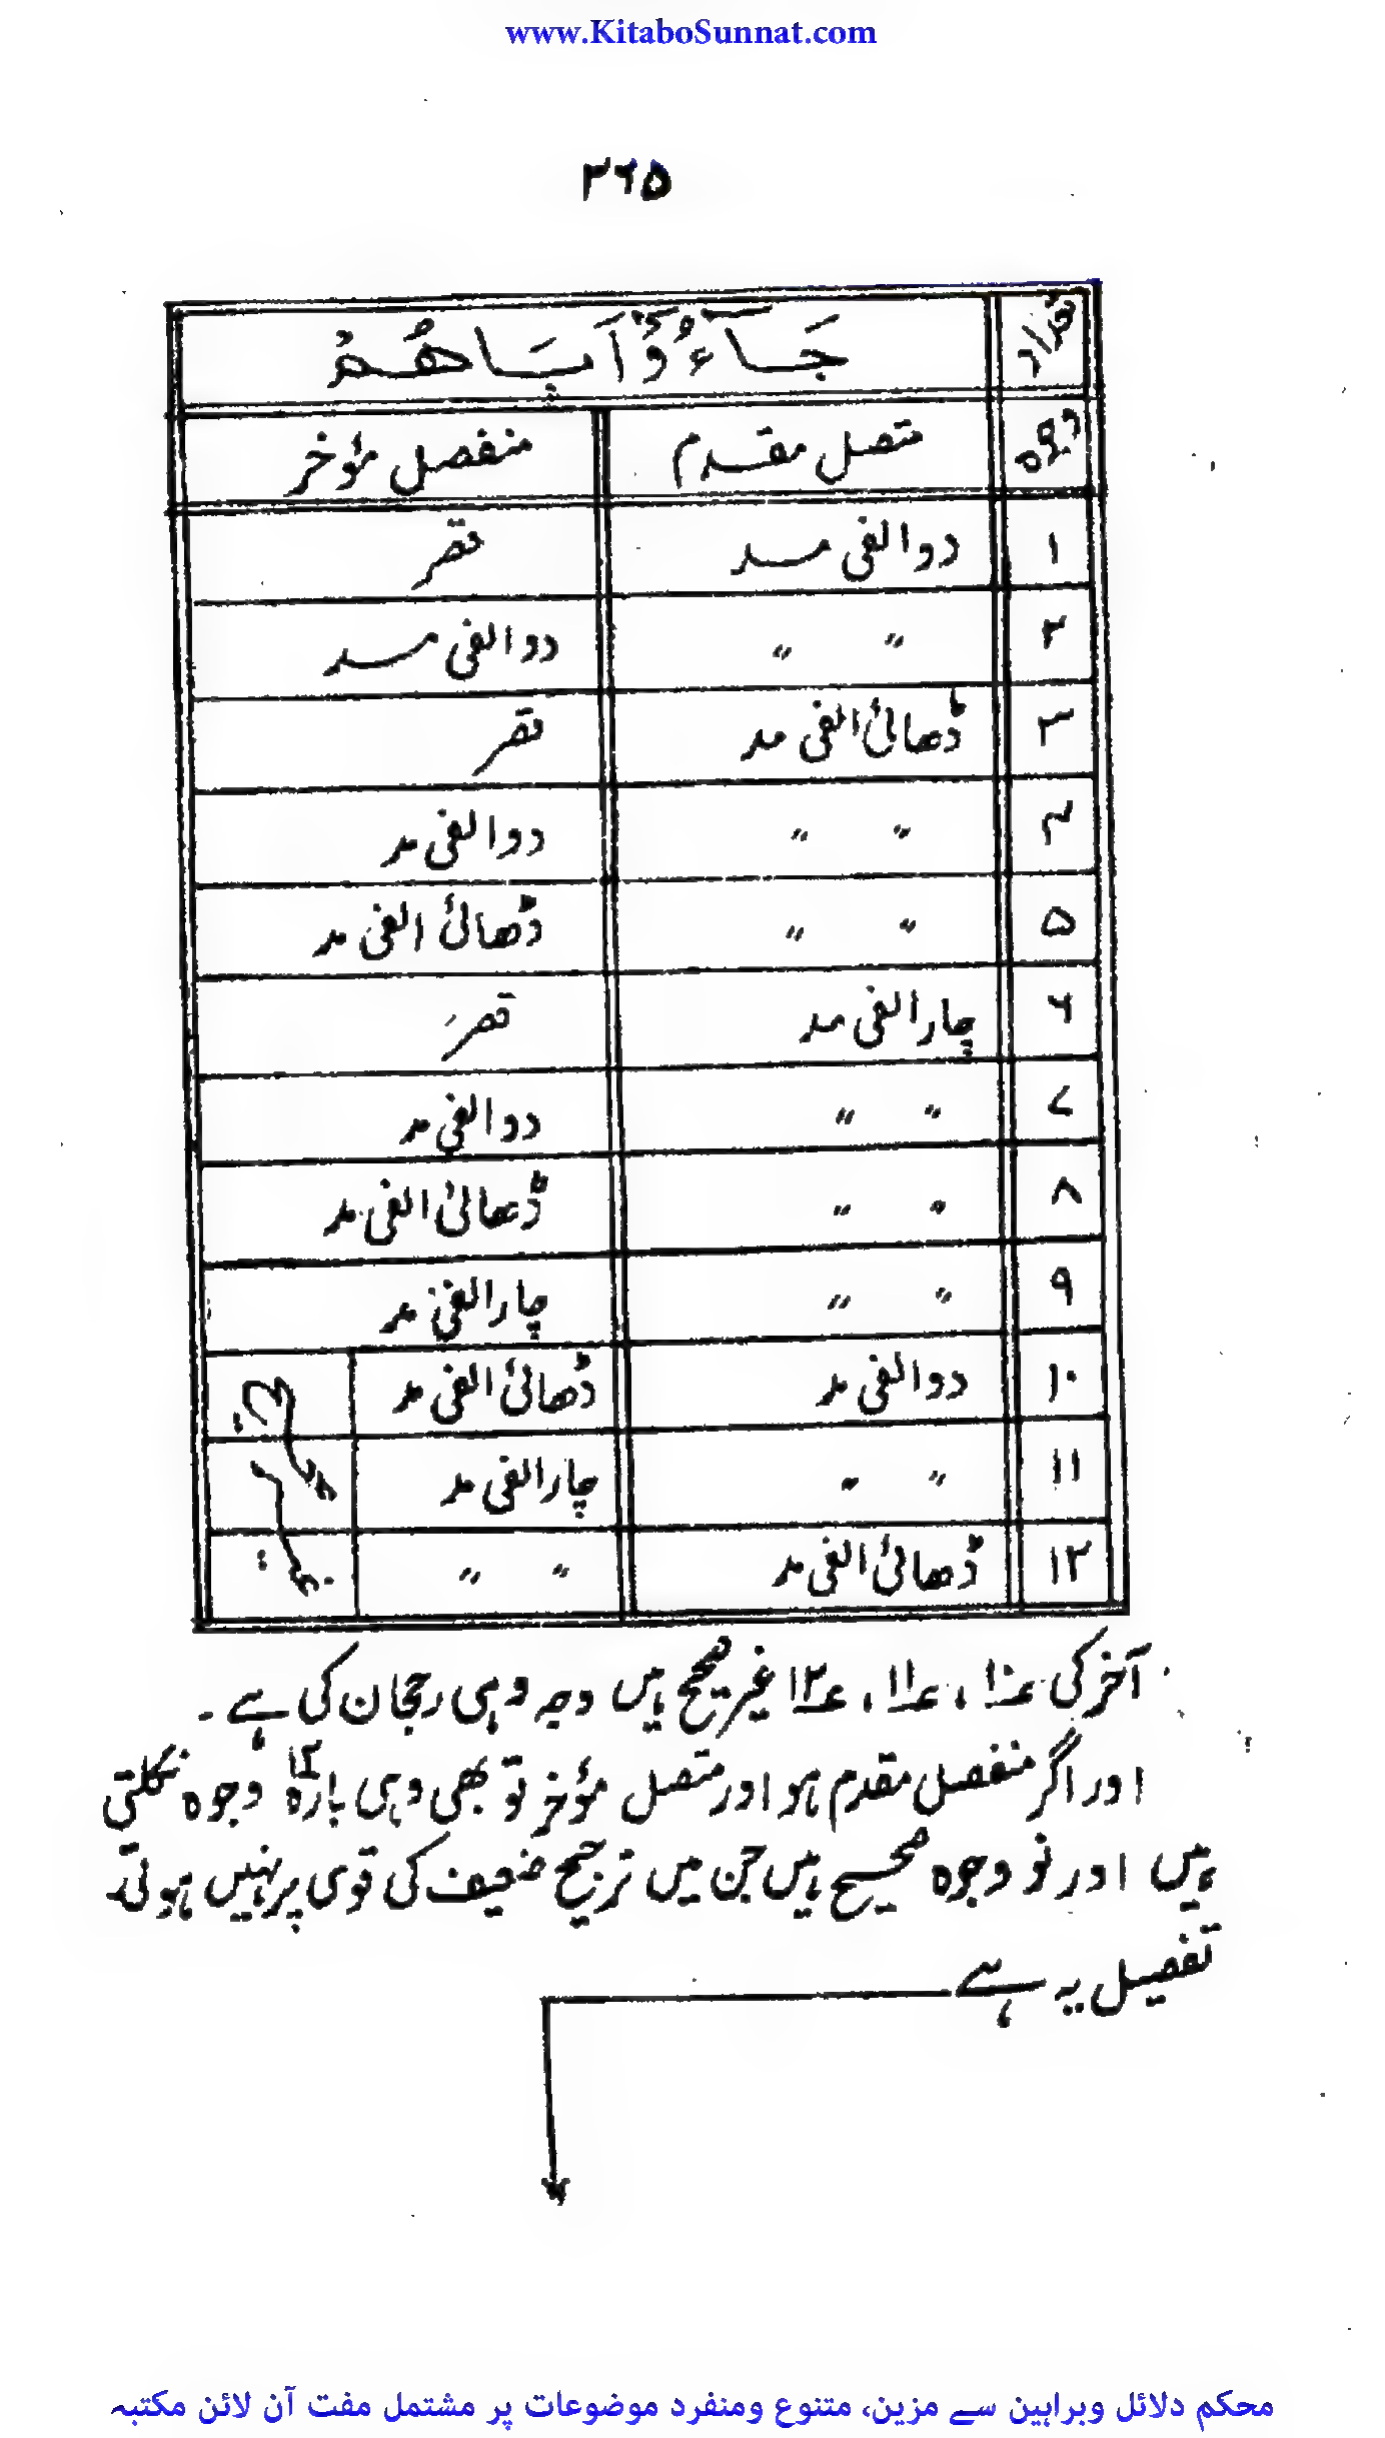 www.KitaboSunnat.com
۳۶۵
تعداد جَآءُوْٓ اَبَاهُمْ
وجوہ متصل مقدم منفصل مؤخر
۱ دو الفی مد قصر
۲ " " دو الفی مد
۳ ڈھائی الفی مد قصر
۴ " " دو الفی مد
۵ " " ڈھائی الفی مد
۶ چار الفی مد قصر
۷ " " دو الفی مد
۸ " " ڈھائی الفی مد
۹ " " چار الفی مد
۱۰ دو الفی مد ڈھائی الفی مد
۱۱ " " چار الفی مد
۱۲ ڈھائی الفی مد " "
غیر صحیح
آخر کی ؏۱۰، ؏۱۱، ؏۱۲ غیر صحیح ہیں وجہ وہی رجحان کی ہے۔
اور اگر منفصل مقدم ہو اور متصل مؤخر تو بھی وہی بارہ ۱۲ وجوہ نکلتی
ہیں اور نو وجوہ صحیح ہیں جن میں ترجیح ضعیف کی قوی پر نہیں ہوتی۔
تفصیل یہ ہے
محکم دلائل وبراہین سے مزین، متنوع ومنفرد موضوعات پر مشتمل مفت آن لائن مکتبہ